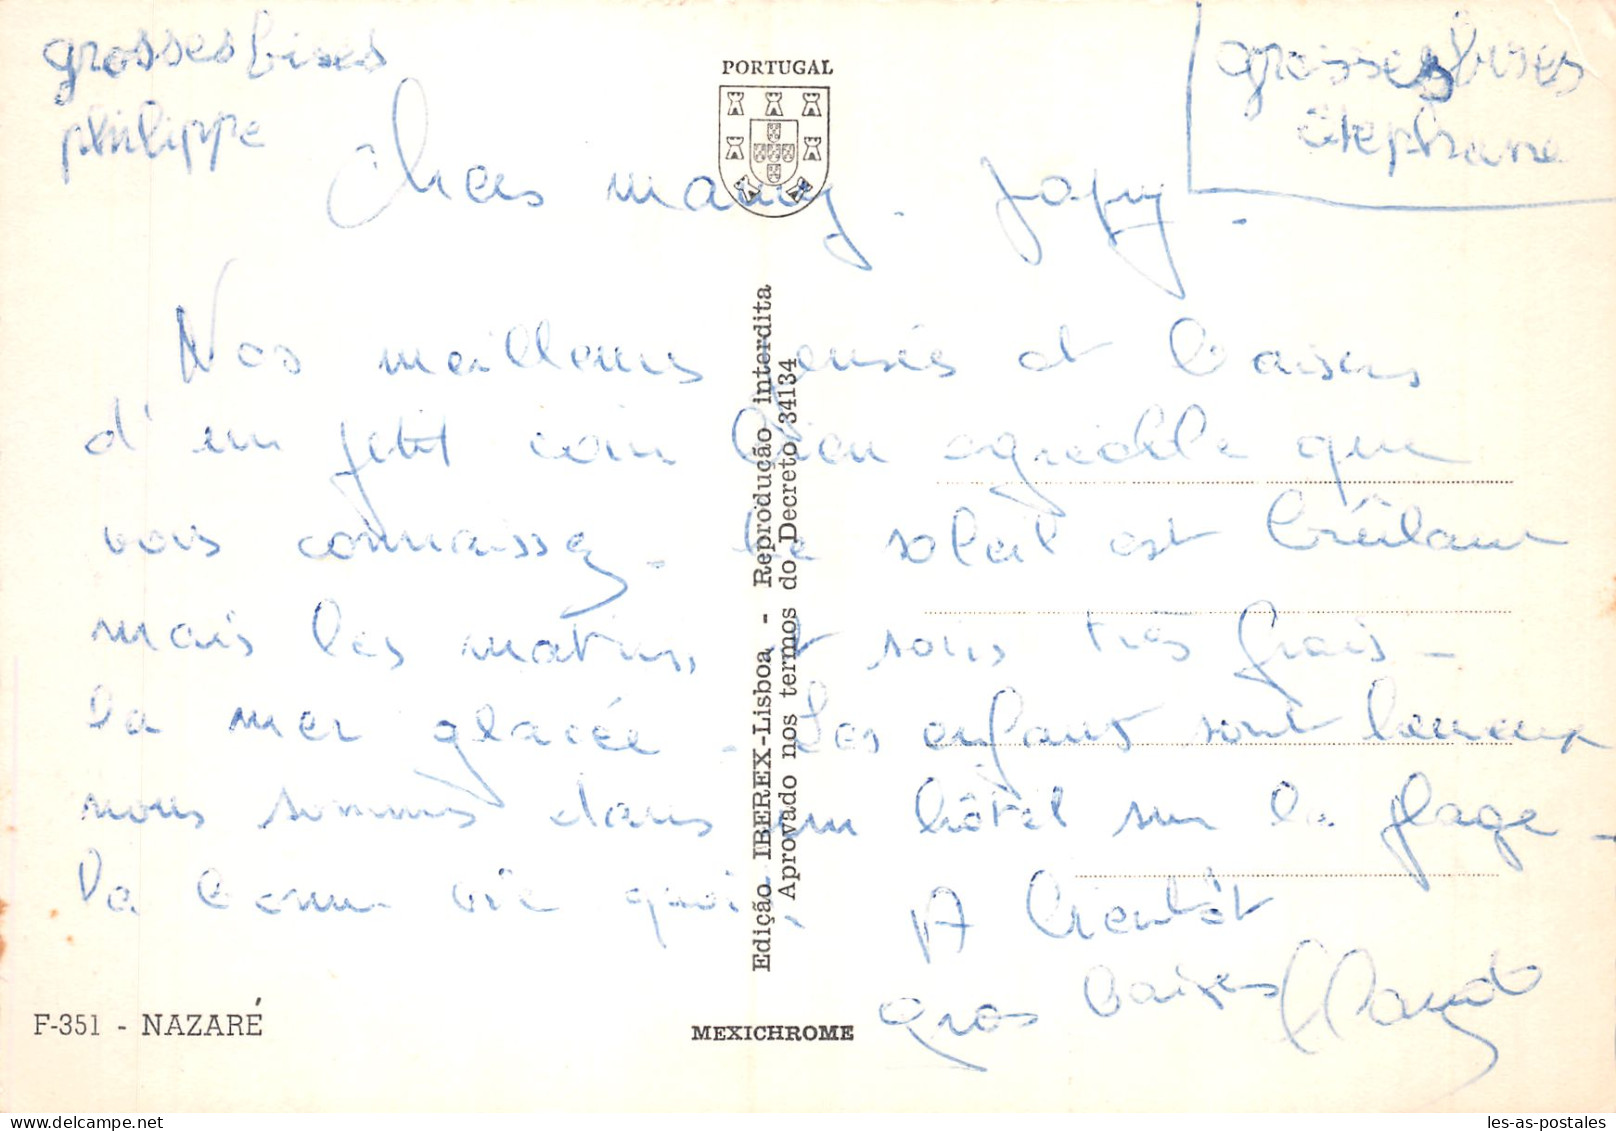 grosses bises
philippe
PORTUGAL
grosses bises
Stéphane
Chers mamy. papy.
Nos meilleurs pensés et baisers
d'un petit coin bien agréable que
vous connaissez. Le soleil est brûlant
mais les matins et soirs très frais -
la mer glacée - Les enfants sont heureux
nous sommes dans un hôtel sur la plage -
la bonne vie quoi.
A bientôt
gros baisers Claude
Edição IBEREX-Lisboa - Reprodução interdita
Aprovado nos termos do Decreto 34134
F-351 - NAZARÉ
MEXICHROME
les-as-postales